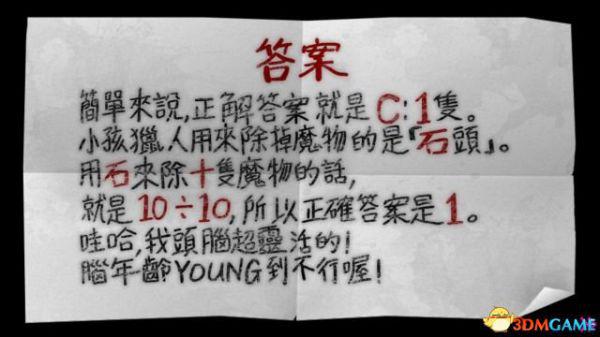 答案
簡單來說,正解答案就是C:1隻。
小孩獵人用來除掉魔物的是「石頭」。
用石來除十隻魔物的話,
就是10÷10,所以正確答案是1。
哇哈,我頭腦超靈活的!
腦年齡YOUNG到不行喔!
3DMGAME